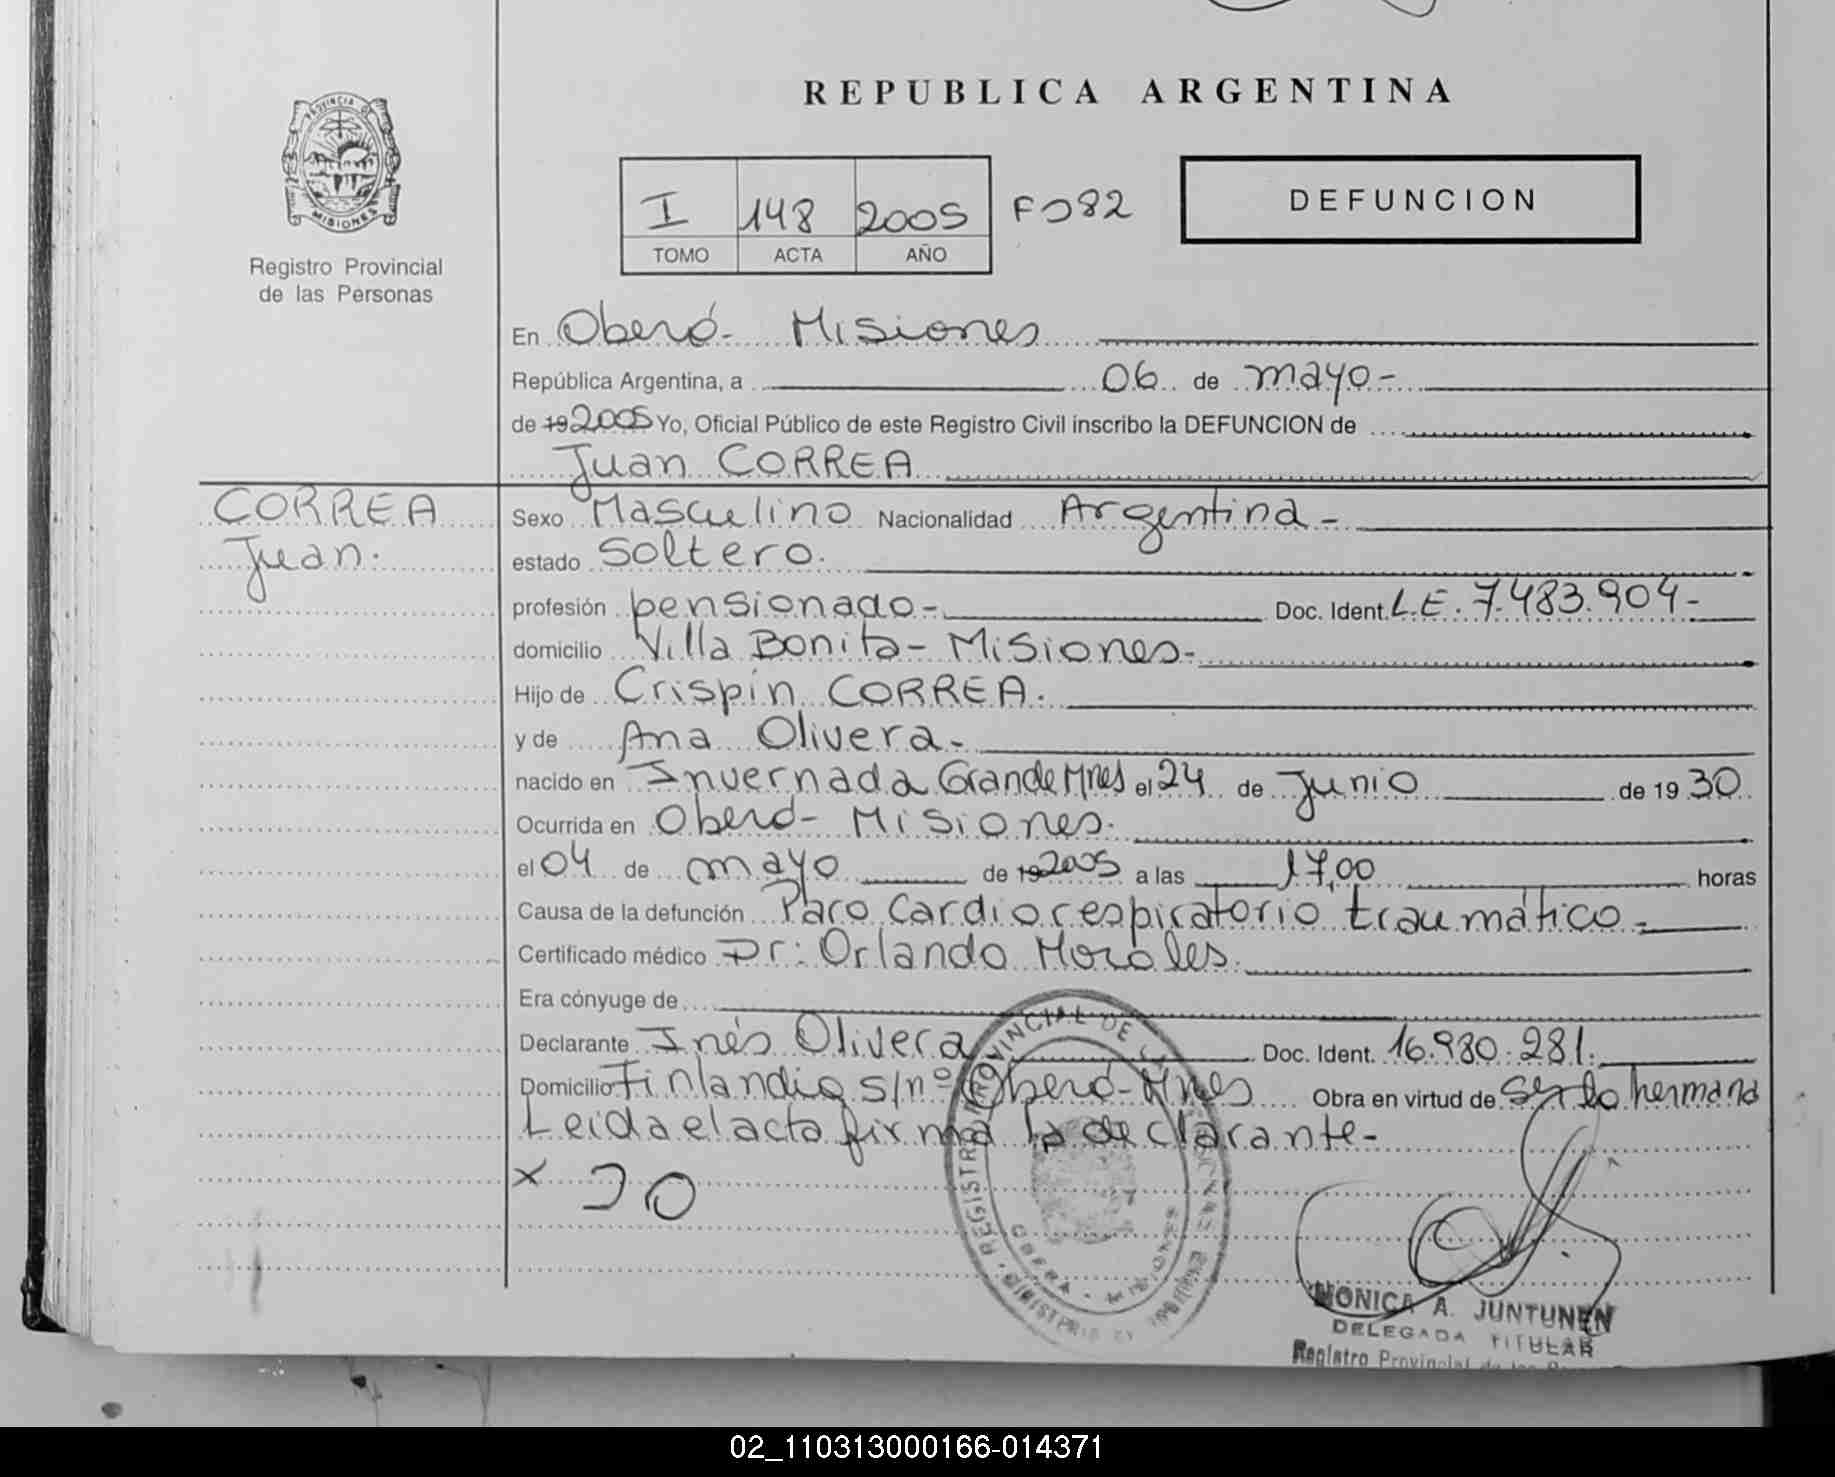 REPUBLICA ARGENTINA
PROVINCIA DE
MISIONES
Registro Provincial
de las Personas
I 148 2005 F082
TOMO ACTA AÑO
DEFUNCION
En Oberá- Misiones
República Argentina, a 06 de mayo-
de 19 2005 Yo, Oficial Público de este Registro Civil inscribo la DEFUNCION de
Juan CORREA
CORREA
Juan.
Sexo Masculino Nacionalidad Argentina-
estado Soltero.
profesión pensionado- Doc. Ident. L.E. 7.483.904-
domicilio Villa Bonita- Misiones-
Hijo de Crispín CORREA.
y de Ana Olivera-
nacido en Invernada Grande Mnes el 24 de Junio de 19 30
Ocurrida en Oberá- Misiones.
el 04 de mayo de 19 2005 a las 17,00 horas
Causa de la defunción Paro Cardiorespiratorio traumático-
Certificado médico Dr: Orlando Morales.
Era cónyuge de
Declarante Inés Olivera Doc. Ident. 16.980.281.
Domicilio Finlandia s/nº Oberá-Mnes Obra en virtud de ser la hermana
Leida el acta firma la declarante-
x IO
REGISTRO PROVINCIAL DE
OBERA - MISIONES
MONICA A. JUNTUNEN
DELEGADA TITULAR
Registro Provincial de las
02_110313000166-014371